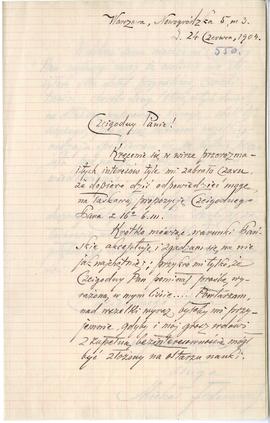 Warszawa, Nowogrodzka 5, m 3.
d. 24 Czerwca, 1904.
550.
Czcigodny Panie!
Kręcenie się w wirze przeróżnych
interesów tyle mi zabrało czasu
że dopiero dziś odpowiedzieć mogę
na łaskawą propozycję Czcigodnego
Pana z 16º b.m.
Krótko mówiąc, warunki Pańskie
akceptuję i zgadzam się na nie
jak najchętniej; przykro mi tylko, że
Czcigodny Pan pominął prośbę wyrażoną
w mym liście.... Powtarzam,
nad wszelki wyraz byłoby mi przyjemnie,
gdyby i mój grosz wdowi
z zupełną bezinteresownością mógł
być złożony na ołtarzu nauki.